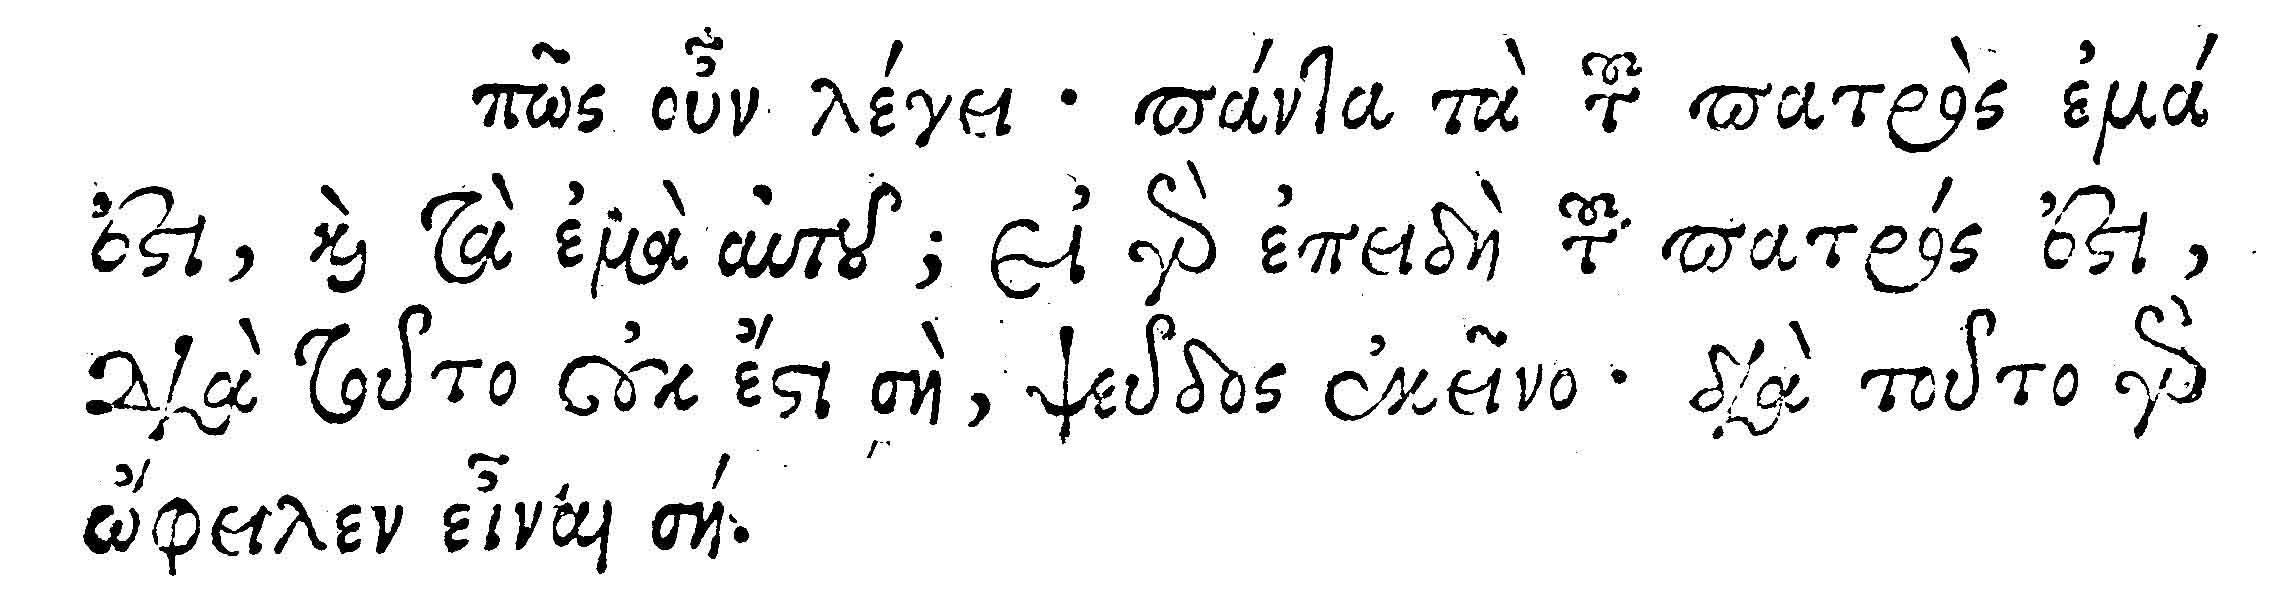 πῶς οὖν λέγει· πάντα τὰ τοῦ πατρὸς ἐμά
ἐστι, καὶ τὰ ἐμὰ αὐτοῦ; εἰ γὰρ ἐπειδὴ τοῦ πατρός ἐστι,
διὰ τοῦτο οὐκ ἔστι σὴ, ψεῦδος ἐκεῖνο· διὰ τοῦτο γὰρ
ὤφειλεν εἶναι σή.